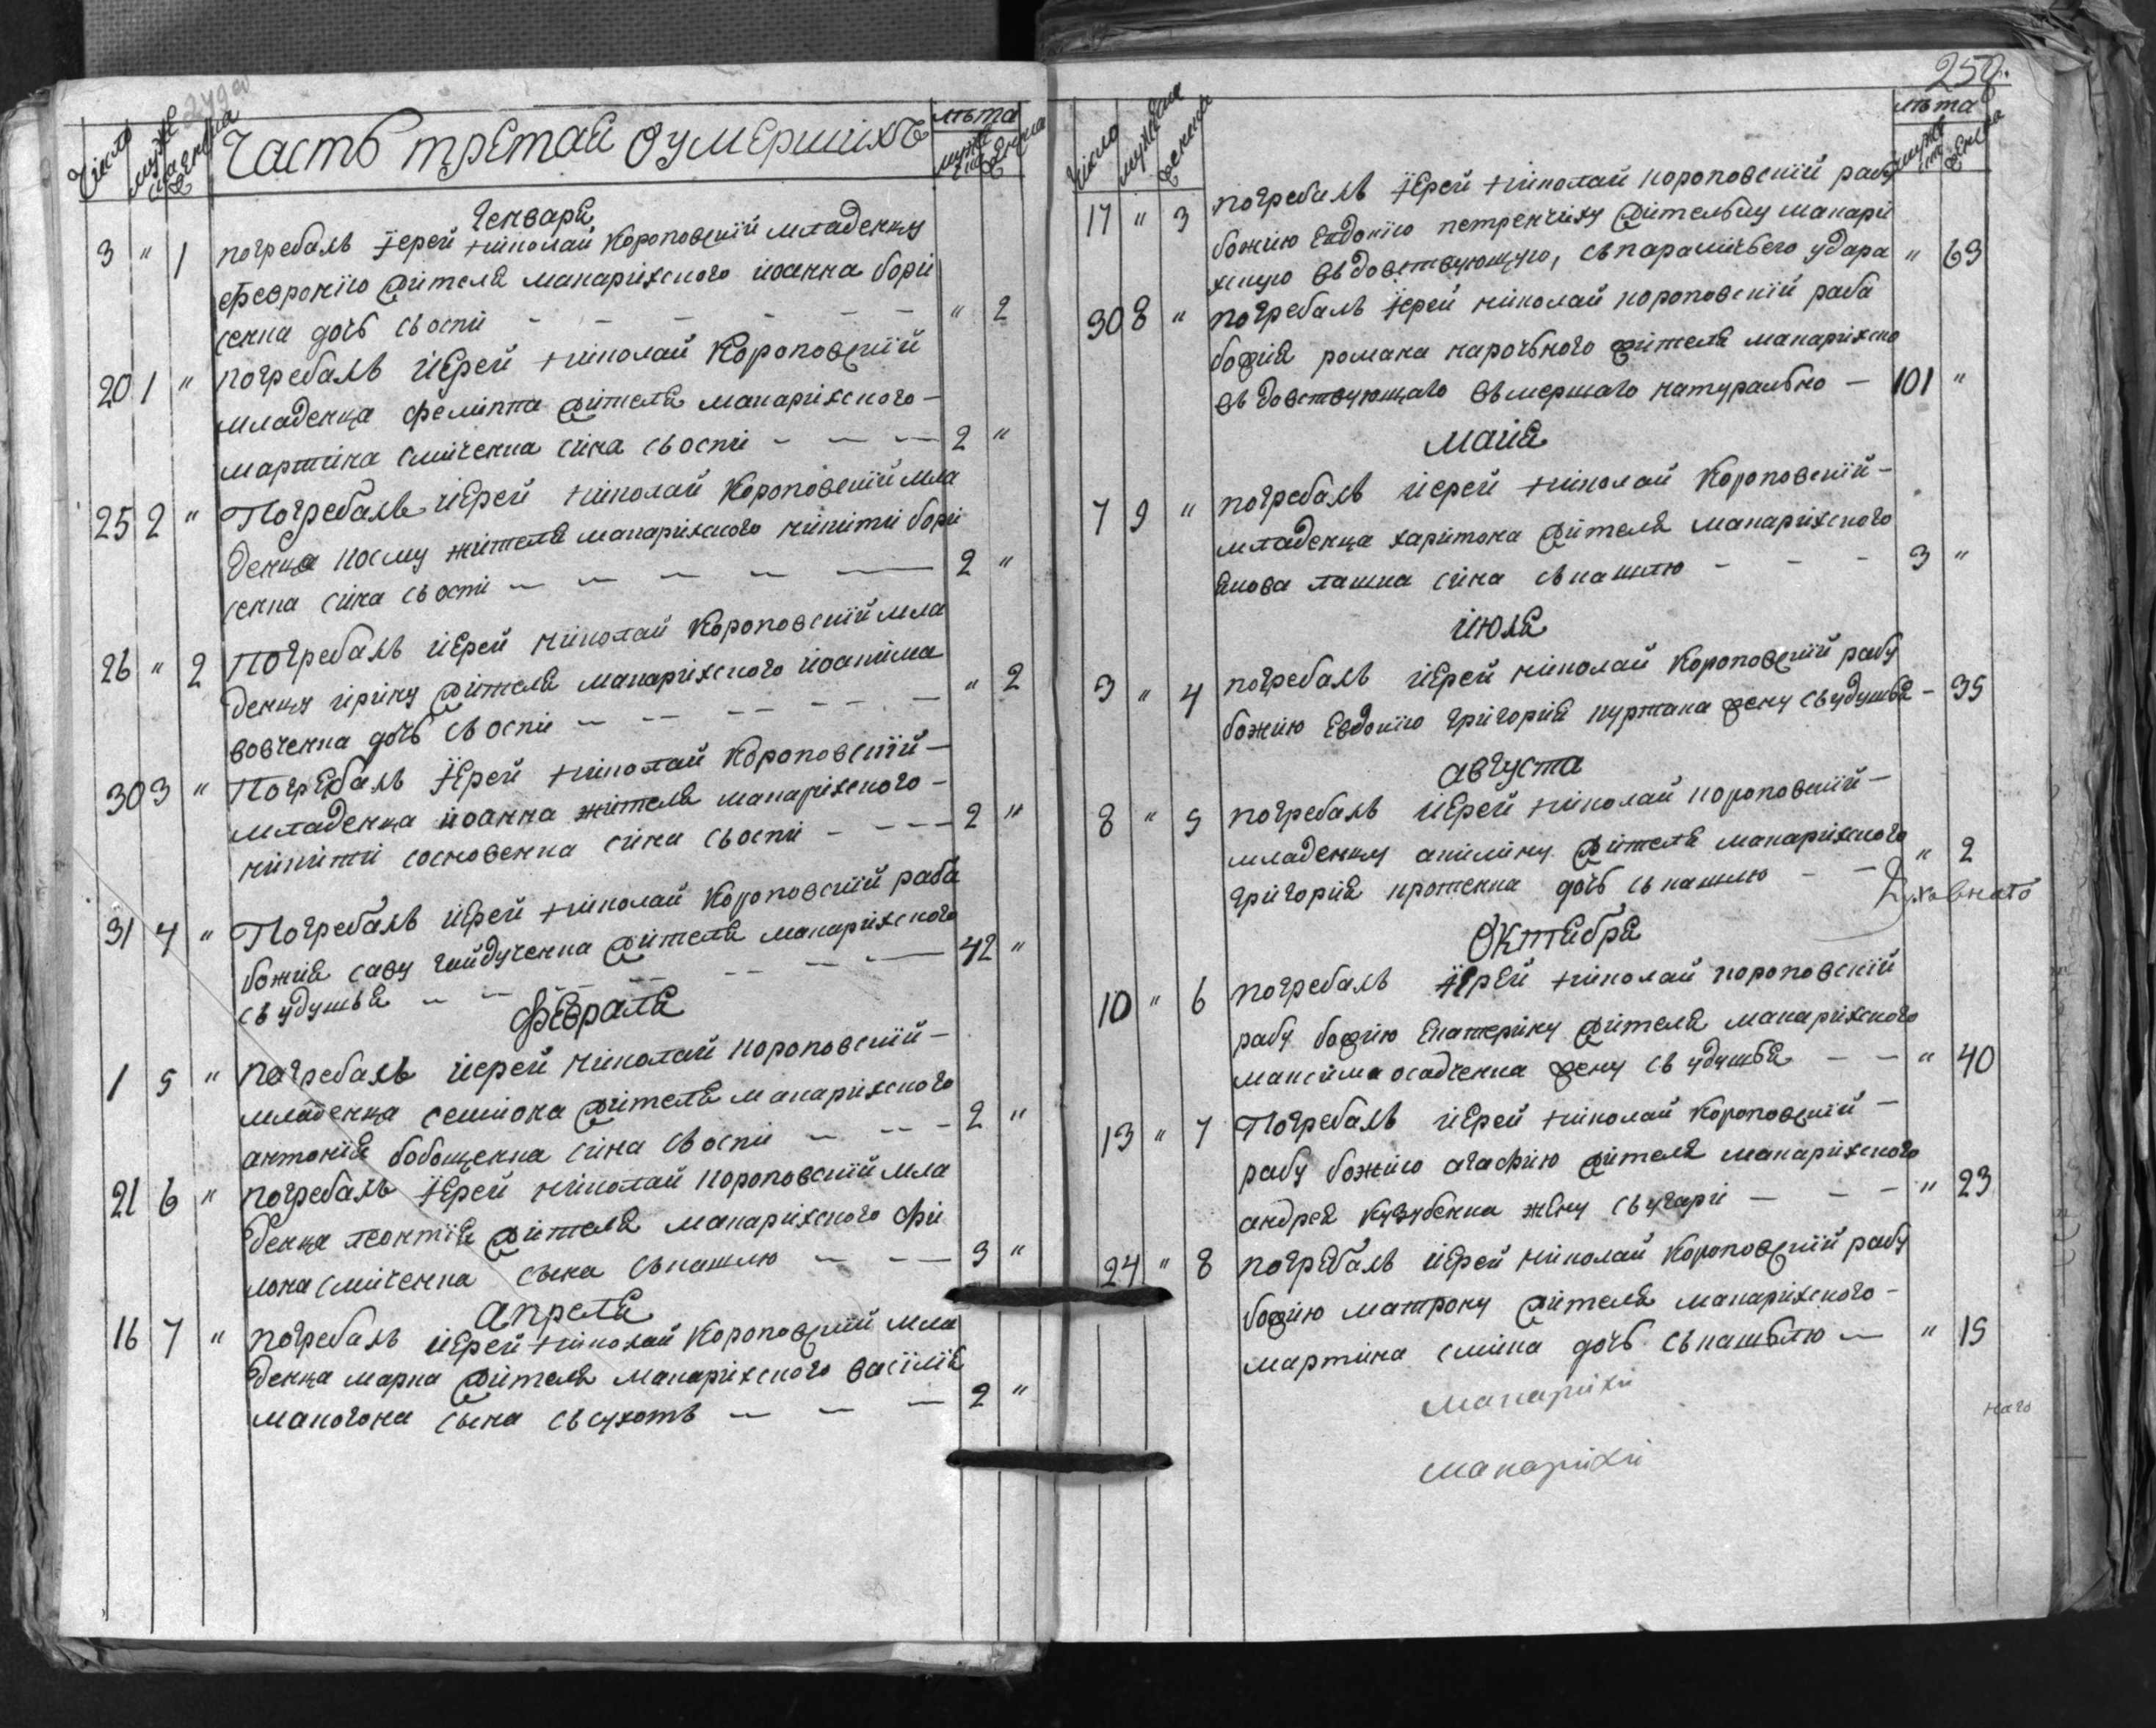 249об
Число
мужеска
женска
Часть третая Оумершихъ
лѣта
мужеска
женска
Генваря
3 " 1 погребалъ Іерей Николай Короповскїй младенцу
Февронїю жителя макарихского іоанна бори
сенка дочь съ оспи - - - - - - " 2
20 1 " погребалъ іерей Николай Короповскїй
младенца Филиппа жителя макарихского -
мартина смиченка сина съ оспи - - - 2 "
25 2 " Погребалъ іерей Николай Короповскїй мла
денца косму жителя макарихского никити бори
сенка сина съ оспи - - - - - 2 "
26 " 2 Погребалъ іерей николай Короповскїй мла
денцу ирину жителя макарихского іоакима
вовченка дочь съ оспи - - - - - - " 2
30 3 " Погребалъ Іерей Николай Короповскїй -
младенца іоанна жителя макарихского -
никити сосновенка сина съ оспи - - - - 2 "
31 4 " Погребалъ іерей Николай Короповскїй раба
божия саву гайдученка жителя макарихского
съ удушья - - - - - - 42 "
Февраля
1 5 " погребалъ іерей николай короповскїй -
младенца семиона жителя макарихского
антонія бобошенка сина съ оспи - - - - 2 "
21 6 " погребалъ Іерей николай короповскїй мла
денца леонтія жителя макарихского фи
лона смиченка сына съ кашлю - - - 3 "
апреля
16 7 " погребалъ іерей Николай Короповскїй мла
денца марка жителя макарихского василія
макогона сына съ сухотъ - - - 2 "
250.
Число
мужеска
женска
лѣта
мужеска
женска
17 " 3 погребалъ Іерей Николай короповскїй рабу
божию Евдокїю петренчиху жительку макари
хскую въдовствующую, съ параличьего удара " 69
30 8 " погребалъ Іерей николай короповскїй раба
божия романа нарочьного жителя макарихско
въдовствующаго въмершаго натурально - 101 "
маия
7 9 " погребалъ іерей Николай Короповскїй -
младенца харитона жителя макарихского
якова лашка сина съ кашлю - - - 3 "
июля
3 " 4 погребалъ іерей николай Короповскїй рабу
божию Евдокїю григория нуртака жену съ удушья - 35
августа
8 " 5 погребалъ іерей Николай короповскїй -
младенцу акилину жителя макарихского
григория кротенка дочь съ кашлю - - " 2
Духовнаго
Октября
10 " 6 погребалъ Іерей Николай короповскїй
рабу божию Екатерину жителя макарихского
максима осадченка жену съ удушья - - " 40
13 " 7 Погребалъ іерей Николай Короповскїй -
рабу божию агафию жителя макарихского
андрея кузубенка жену съ угари - - - " 23
24 " 8 погребалъ іерей николай Короповскїй рабу
божию матрону жителя макарихского -
мартина смика дочь съ кашьлю - " 15
макарихи
макарихи
наго